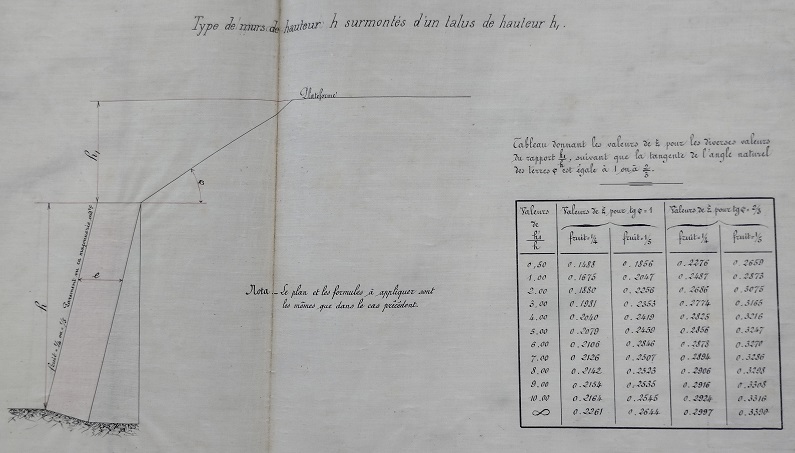 Type de murs de hauteur h surmontés d'un talus de hauteur h₁.
Plateforme
h₁
h
e
Parement vu en maçonnerie ord.re
fruit = 1/4 ou 1/5
Nota – Le plan et les formules à appliquer sont
les mêmes que dans le cas précédent.
Tableau donnant les valeurs de ξ pour les diverses valeurs
du rapport h₁/h, suivant que la tangente de l'angle naturel
des terres φ est égale à 1 ou à 2/3.
Valeurs de h₁/h Valeurs de ξ pour tg φ = 1 Valeurs de ξ pour tg φ = 2/3
fruit = 1/4 fruit = 1/5 fruit = 1/4 fruit = 1/5
0,50 0.1483 0.1856 0.2276 0.2659
1.00 0.1675 0.2047 0.2487 0.2873
2.00 0.1880 0.2256 0.2686 0.3075
3.00 0.1981 0.2353 0.2774 0.3165
4.00 0.2040 0.2419 0.2825 0.3216
5.00 0.2079 0.2459 0.2856 0.3247
6.00 0.2106 0.2846 0.2873 0.3270
7.00 0.2126 0.2507 0.2894 0.3286
8.00 0.2142 0.2523 0.2906 0.3298
9.00 0.2154 0.2535 0.2916 0.3308
10.00 0.2164 0.2545 0.2924 0.3316
∞ 0.2261 0.2644 0.2997 0.3390